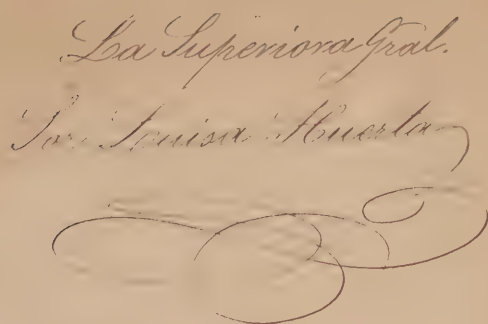 La Superiora Gral.
Sor Luisa Huerta